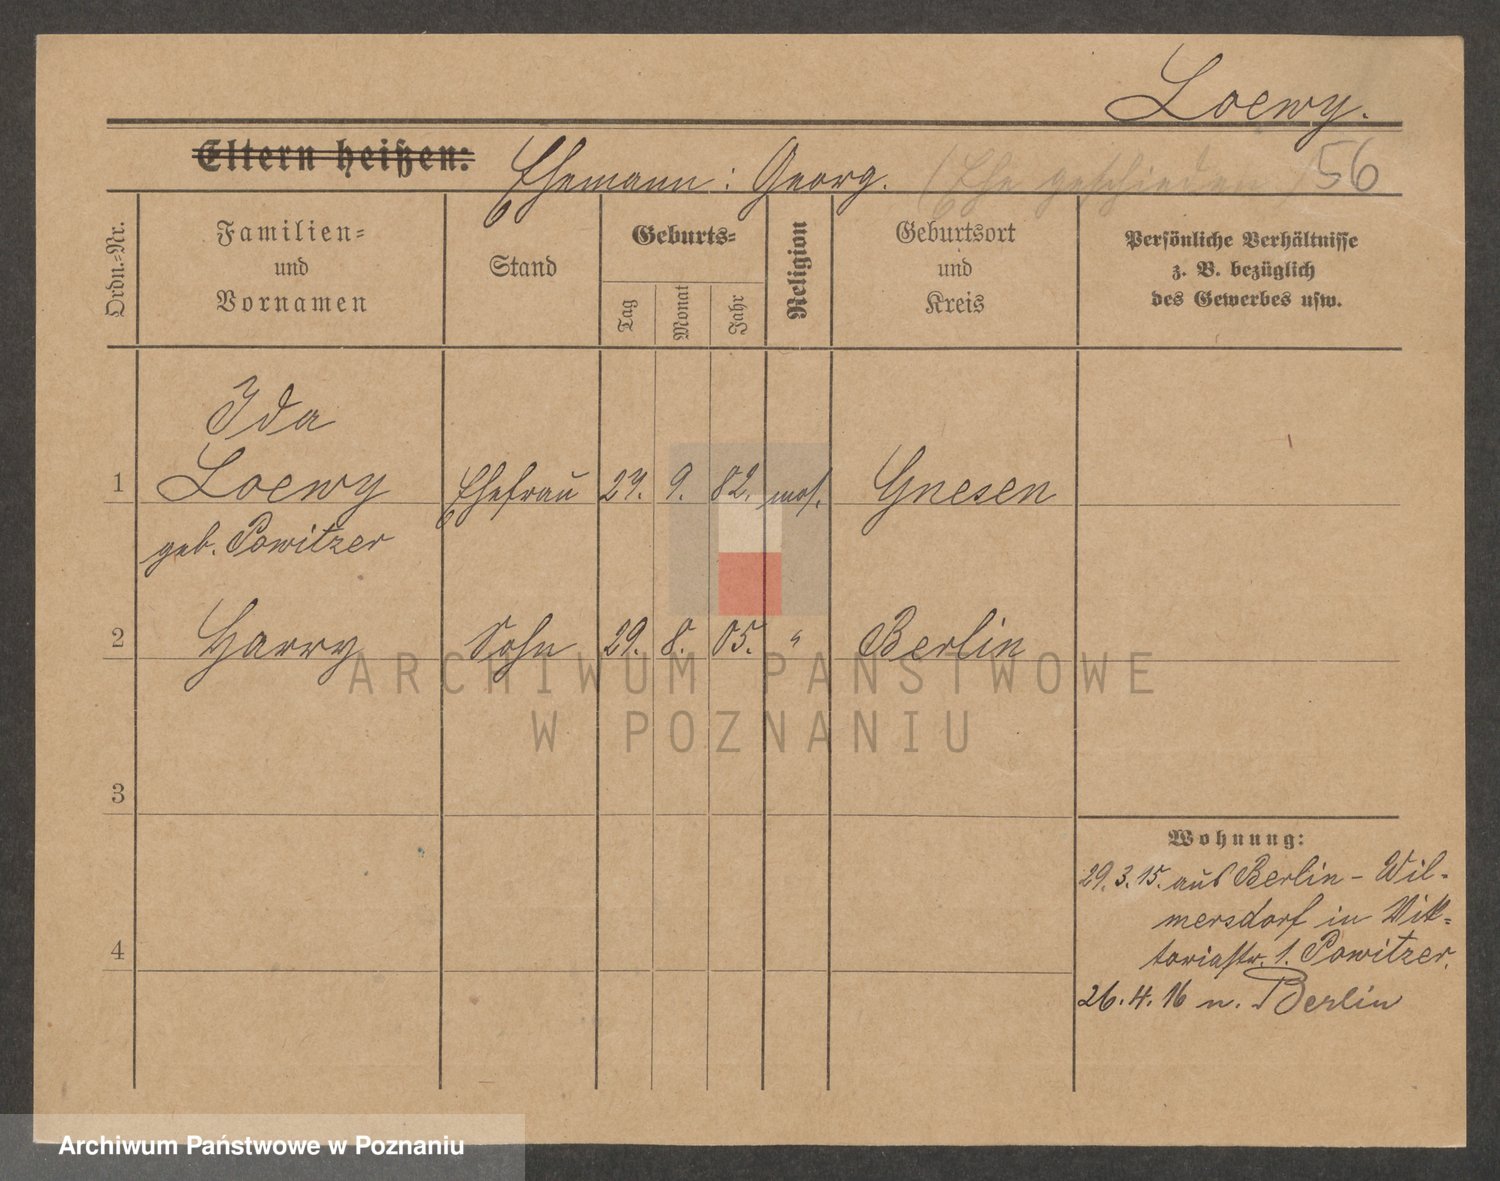 Loewy.
Eltern heißen: Ehemann: Georg. (Ehe geschieden) 56
Ordn.-Nr.
Familien-
und
Vornamen
Stand
Geburts-
Tag
Monat
Jahr
Religion
Geburtsort
und
Kreis
Persönliche Verhältnisse
z. B. bezüglich
des Gewerbes usw.
Ida
1 Loewy Ehefrau 27. 9. 82. mos. Gnesen
geb. Powitzer
2 Harry Sohn 29. 8. 05. " Berlin
ARCHIWUM PAŃSTWOWE
W POZNANIU
3
Wohnung:
29.3.15. aus Berlin-Wil-
mersdorf in Vik-
toriastr. 1. Powitzer.
4
26.4.16 n. Berlin
Archiwum Państwowe w Poznaniu